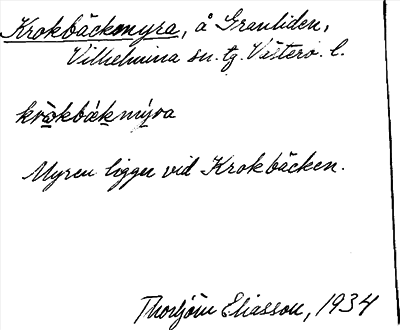 Krokbäcksmyra, å Granliden,
Vilhelmina sn. tg. Västerb. l.
krokbäkmyra
Myren ligger vid Krokbäcken.
Thorbjörn Eliasson, 1934